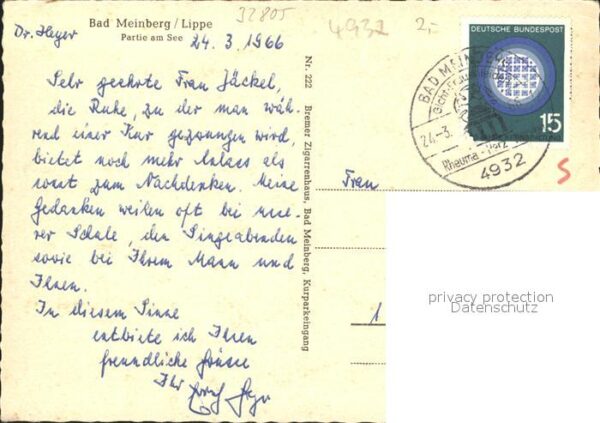 32805
4932
2,-
Dr. Heger
Bad Meinberg / Lippe
Partie am See
24. 3. 1966
Sehr geehrte Frau Jäckel,
die Ruhe, zu der man wäh-
rend einer Kur gezwungen wird,
bietet noch mehr Anlass als
sonst zum Nachdenken. Meine
Gedanken weilen oft bei unse-
rer Schule, den Singeabenden
sowie bei Ihrem Mann und
Ihnen.
In diesem Sinne
entbiete ich Ihnen
freundliche Grüsse
Ihr
Nr. 222 Bremer Zigarrenhaus, Bad Meinberg, Kurparkeingang
Frau
1
DEUTSCHE BUNDESPOST
15
BAD MEINBERG
24.-3.
Rheuma - Herz
4932
S
privacy protection
Datenschutz